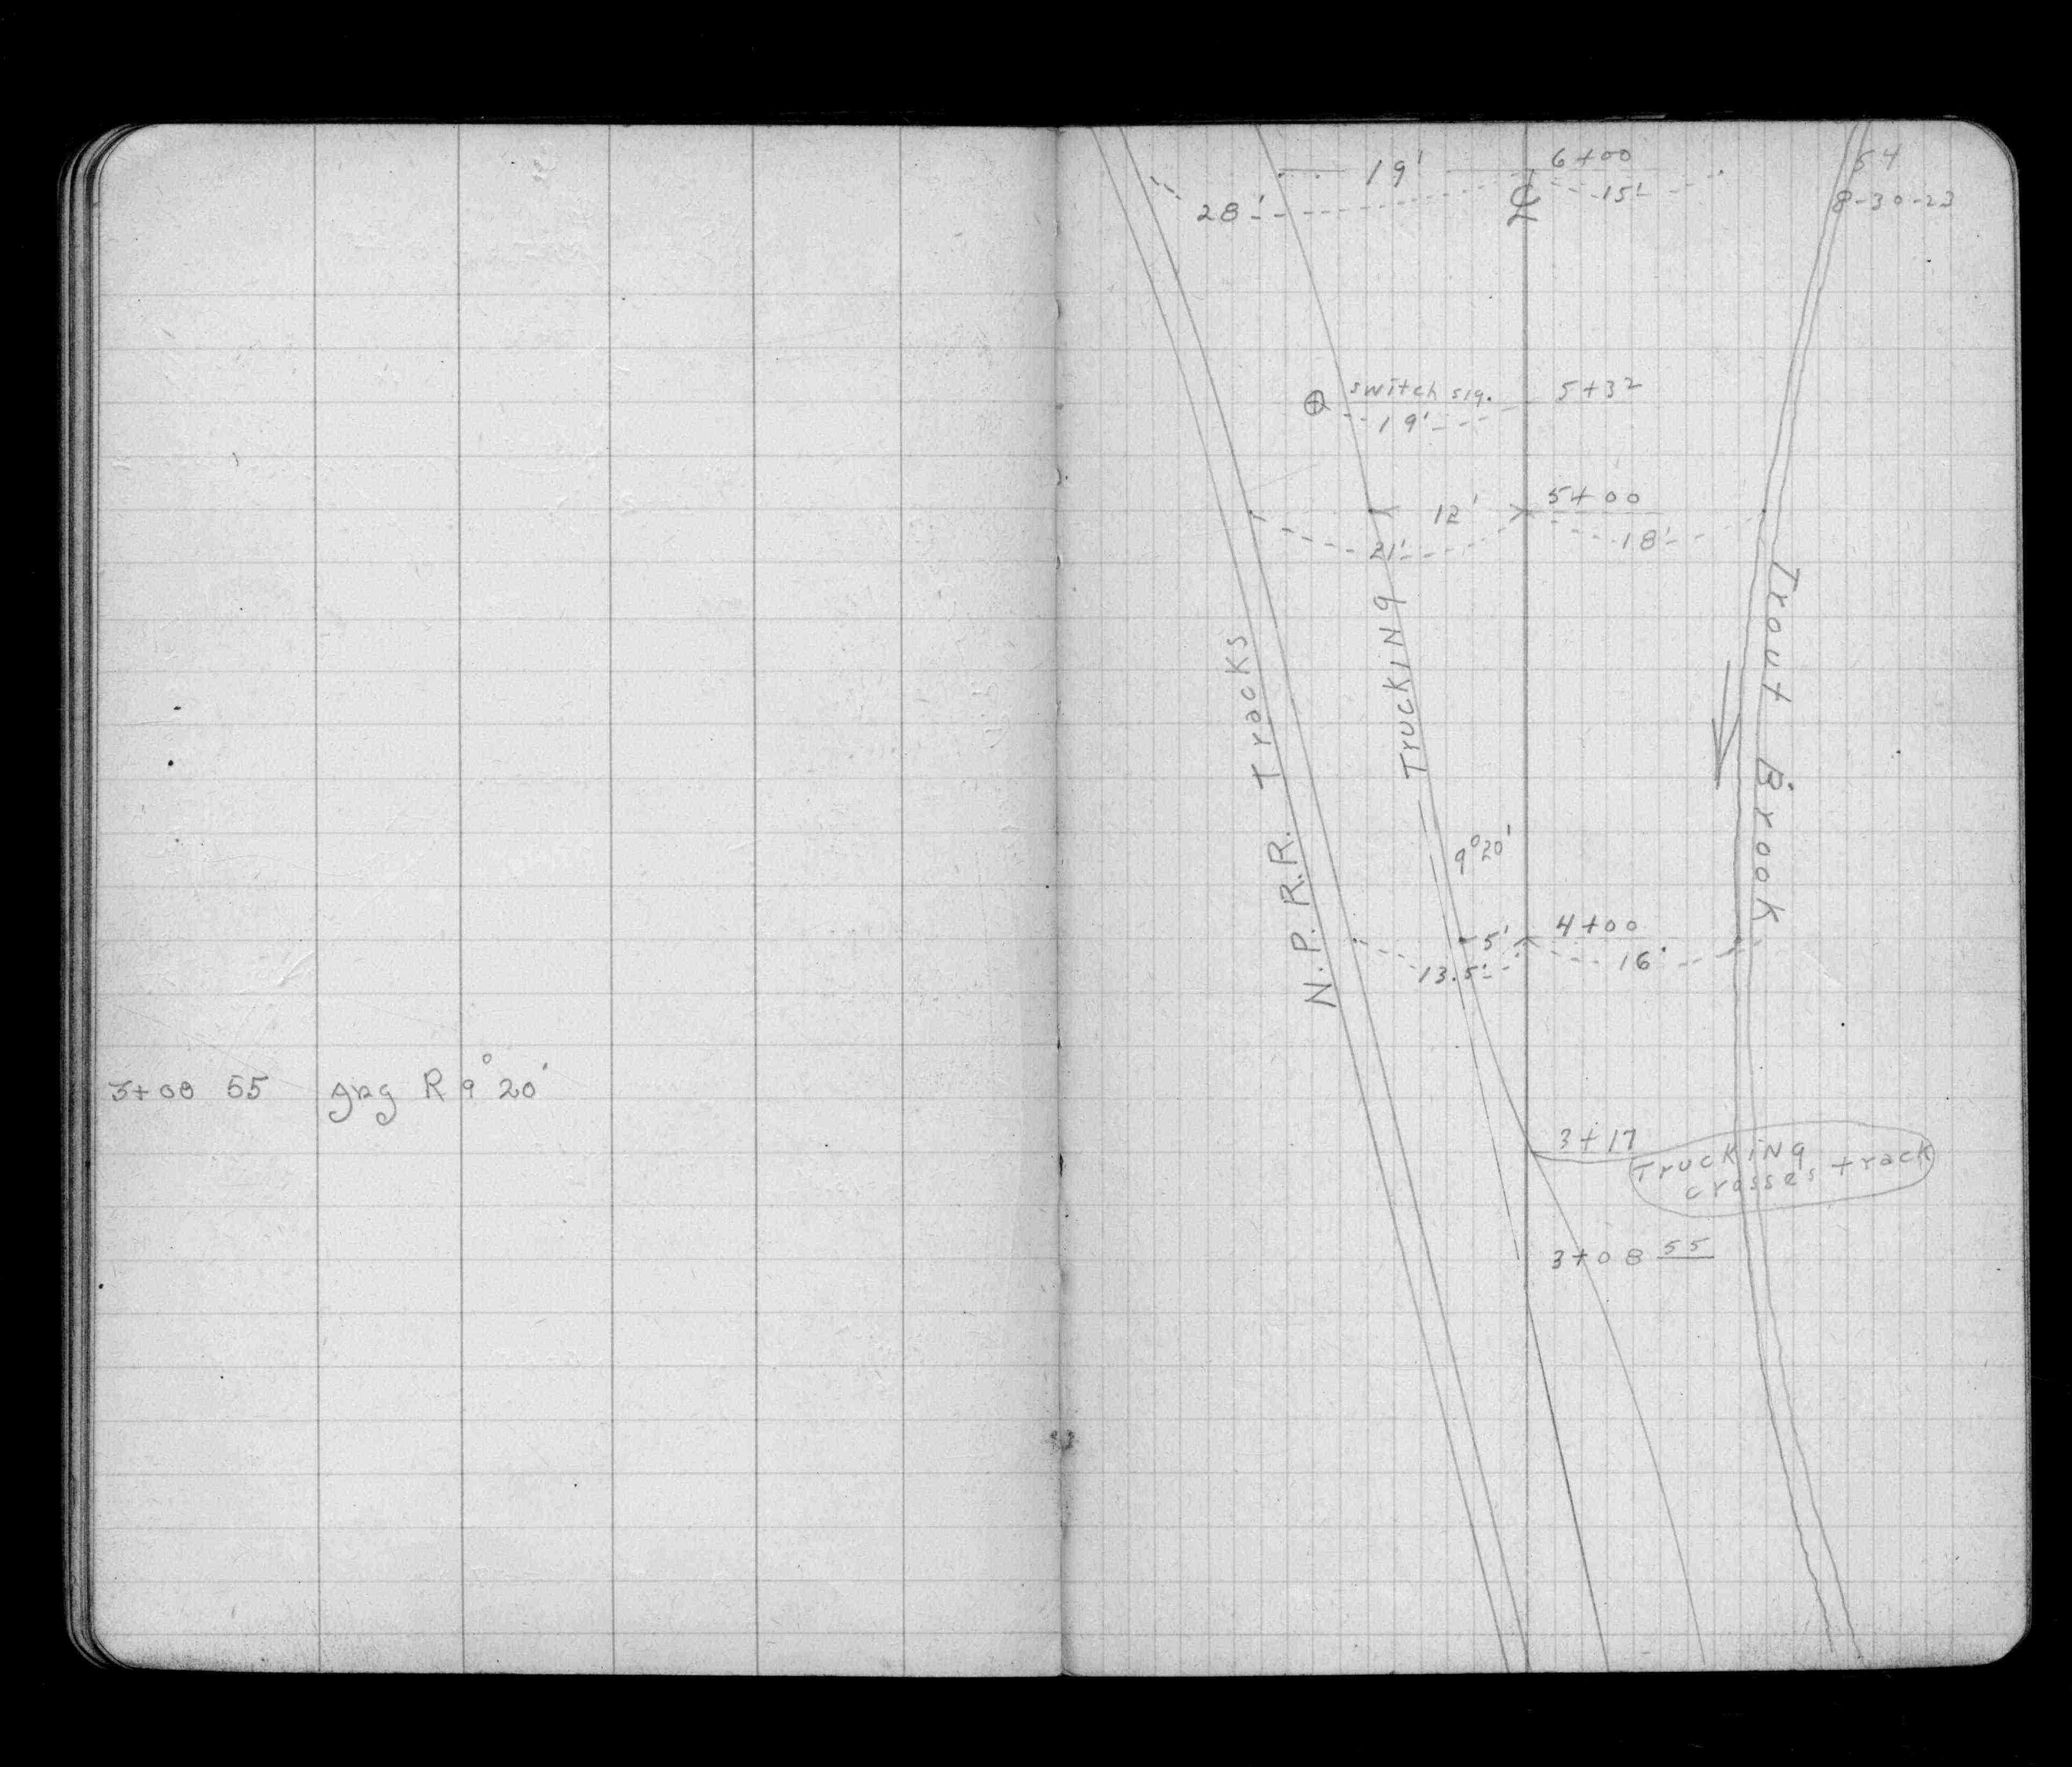 3+08 55 ang R 9°20'
19' 6+00 54
28' ℄ 15' 8-30-23
switch sig. 5+32
19'
12' 5+00
21' 18'
Trout Brook
N.P.R.R. Tracks
Trucking
9°20'
5' 4+00
13.5' 16'
3+17
Trucking
crosses track
3+08 55